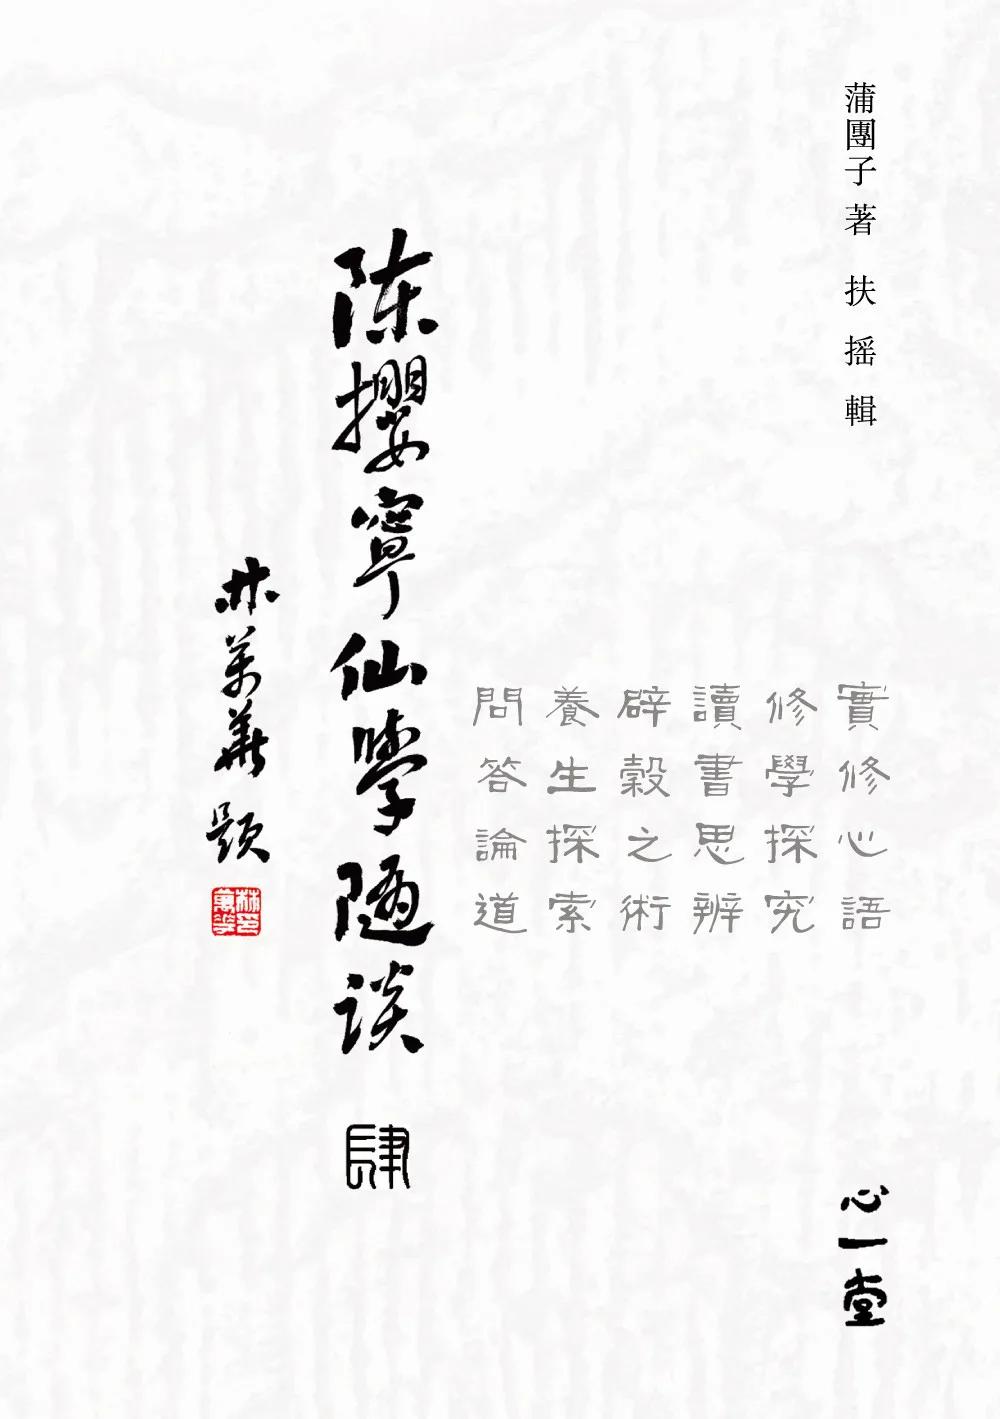 蒲團子著 扶摇輯
實修心語
修學探究
讀書思辨
辟穀之術
養生探索
問答論道
陈攖寧仙學随谈 肆
林萬華题
心一堂